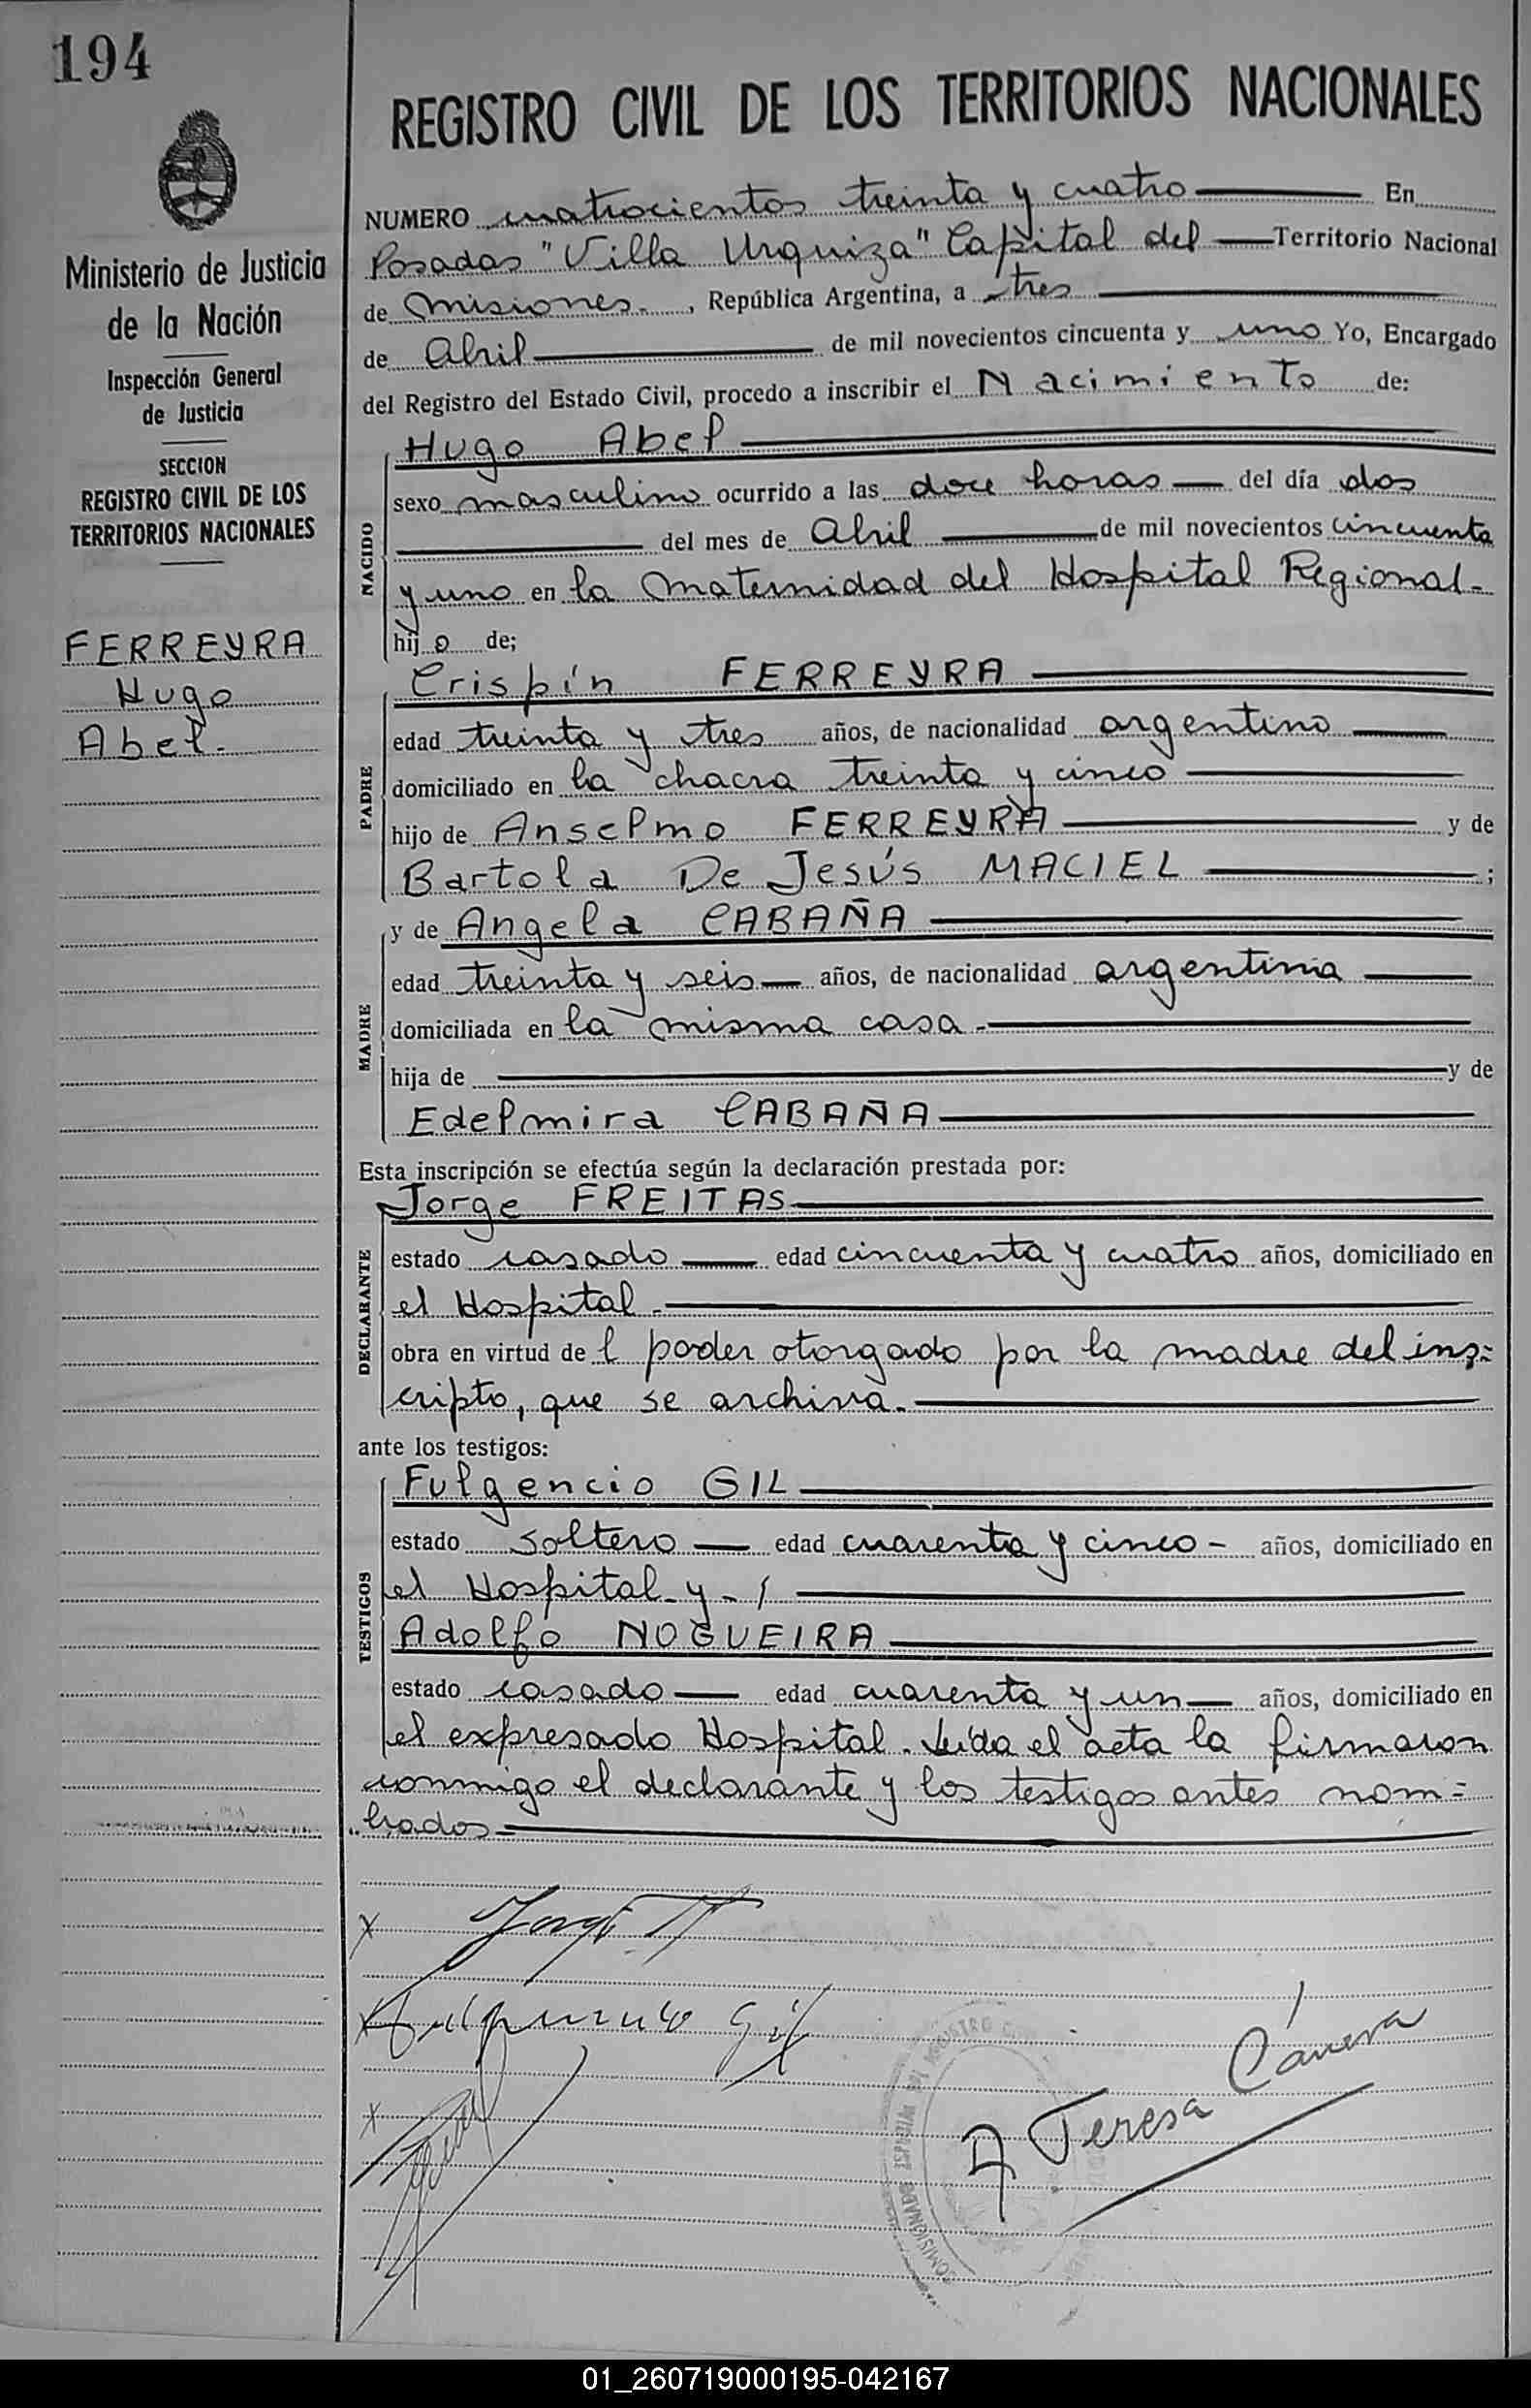 194
Ministerio de Justicia
de la Nación
Inspección General
de Justicia
SECCION
REGISTRO CIVIL DE LOS
TERRITORIOS NACIONALES
FERREYRA
Hugo
Abel.
REGISTRO CIVIL DE LOS TERRITORIOS NACIONALES
NUMERO cuatrocientos treinta y cuatro En
Posadas "Villa Urquiza" Capital del Territorio Nacional
de Misiones., República Argentina, a tres
de Abril de mil novecientos cincuenta y uno Yo, Encargado
del Registro del Estado Civil, procedo a inscribir el Nacimiento de:
Hugo Abel
sexo masculino ocurrido a las doce horas del día dos
NACIDO
del mes de Abril de mil novecientos cincuenta
y uno en la Maternidad del Hospital Regional-
hijo de;
Crispín FERREYRA
edad treinta y tres años, de nacionalidad argentino
PADRE
domiciliado en la chacra treinta y cinco
hijo de Anselmo FERREYRA y de
Bartola De Jesús MACIEL ;
y de Angela CABAÑA
edad treinta y seis años, de nacionalidad argentina
MADRE
domiciliada en la misma casa.-
hija de y de
Edelmira CABAÑA
Esta inscripción se efectúa según la declaración prestada por:
Jorge FREITAS
DECLARANTE
estado casado edad cincuenta y cuatro años, domiciliado en
el Hospital.
obra en virtud de l poder otorgado por la madre del ins=
cripto, que se archiva.
ante los testigos:
Fulgencio GIL
estado soltero edad cuarenta y cinco - años, domiciliado en
TESTIGOS
el Hospital y-/
Adolfo NOGUEIRA
estado casado edad cuarenta y un años, domiciliado en
el expresado Hospital. Leída el acta la firmaron
conmigo el declarante y los testigos antes nom=
brados
x Jorge
x Fulgencio Gil
x
A Teresa Cánera
COMISIONADO ESPECIAL DEL REGISTRO CIVIL
01_260719000195-042167